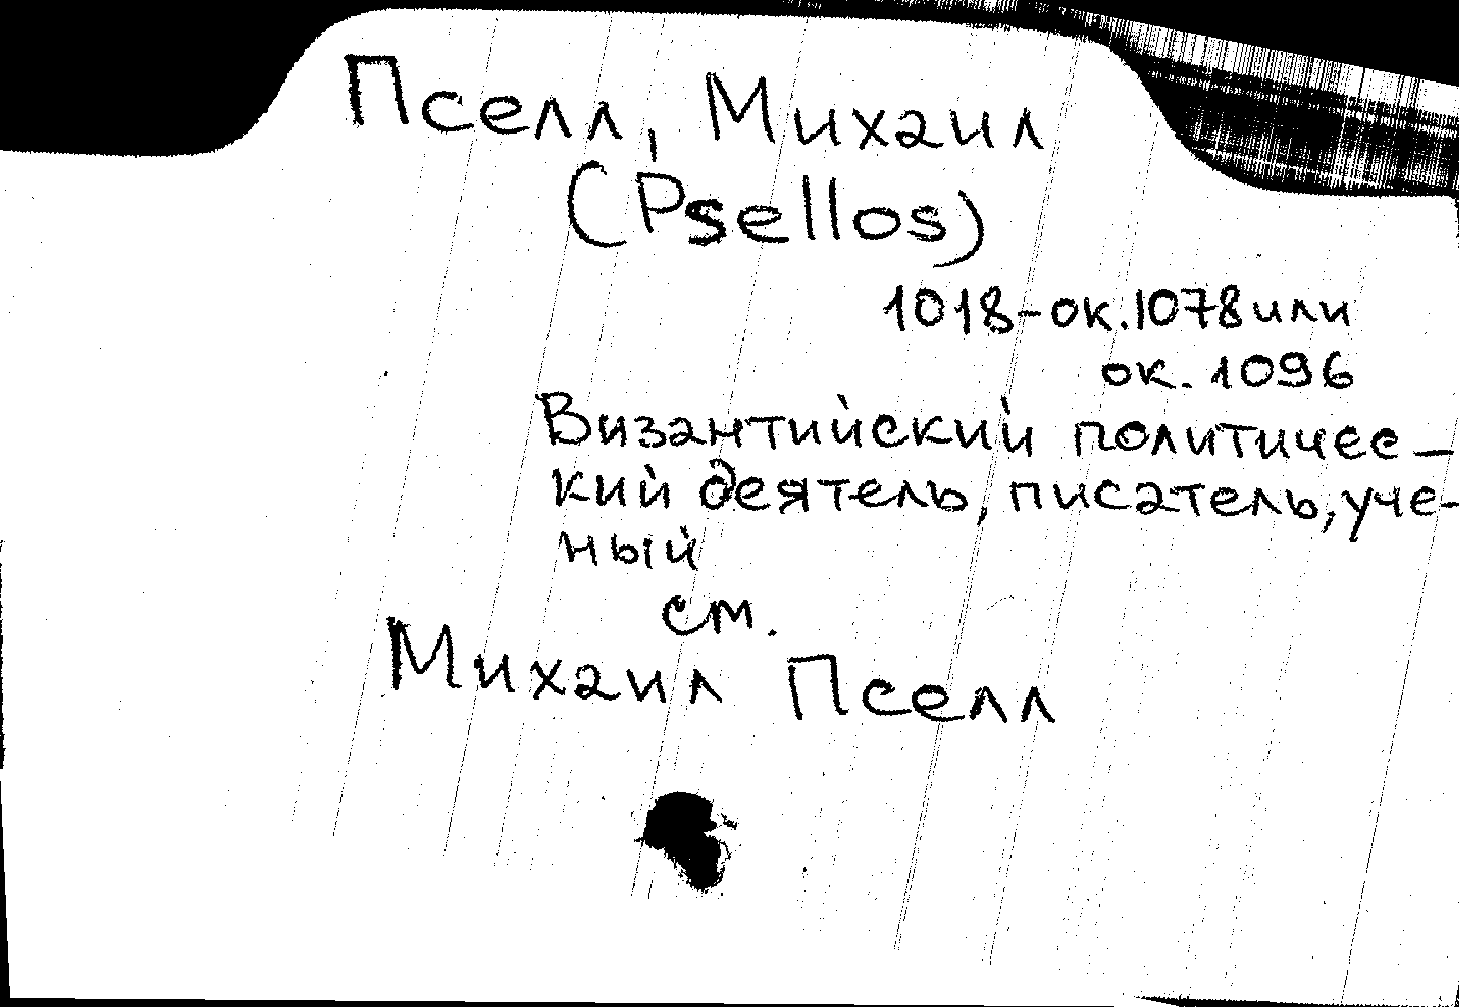 Пселл, Михаил
(Psellos)
1018-ок.1078 или
ок. 1096
Византийский политичес-
кий деятель, писатель, уче-
ный
см.
Михаил Пселл